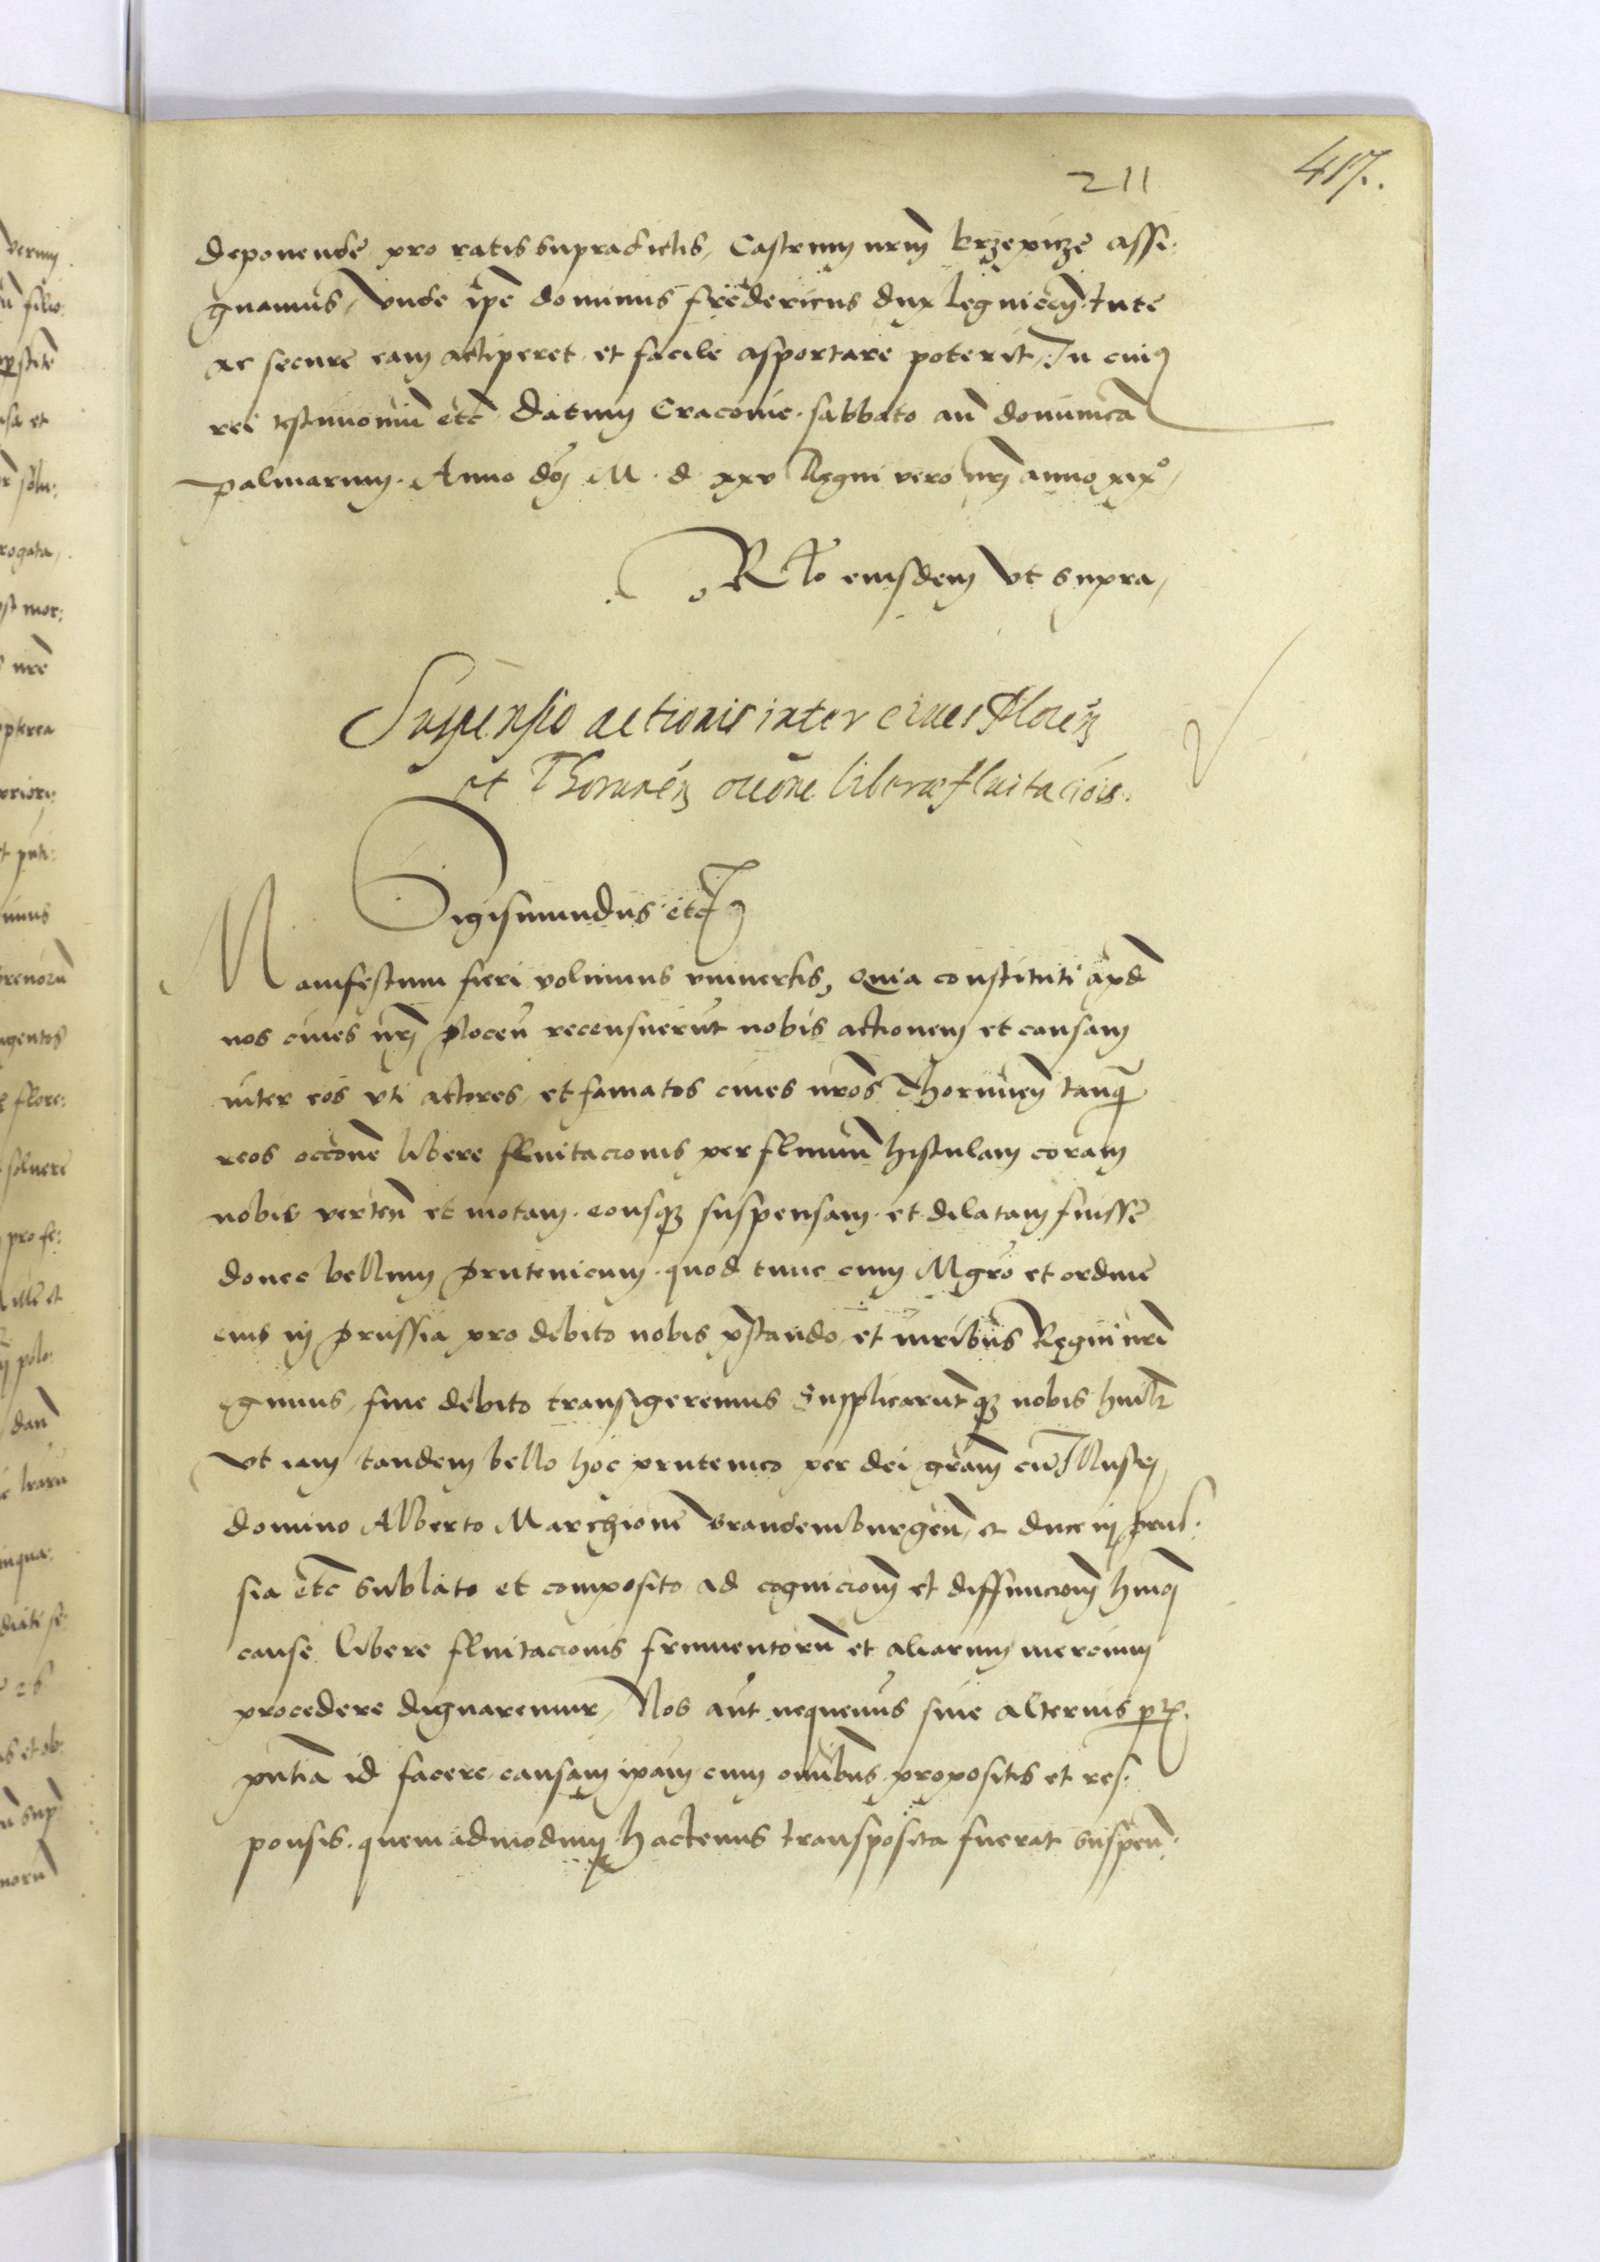 211
417.
deponende pro ratis supradictis, Castrum nrm krzepicze assi-
gnamus, vnde ipe dominus fredericus dux legnicen tute
ac secure eam acciperet et facile asportare poterit, In cuius
rei testimonium etc Datum Cracouie sabbato an dominica
palmarum. Anno dnj M d xxv Regni vero nrj anno xix°
Rlo eiusdem vt supra,
Suspensio actionis inter ciues Plocen
et Thorunen occone liberæ fluitaciois.
Sigismundus etc
Manifestum fieri volumus vniuersis, Quia constituti apud
nos ciues nrj plocen recensuerut nobis actionem et causam
inter eos vti actores et famatos ciues nros Thorunien tanq
reos occone libere fluitacionis per fluuiu histulam coram
nobis verten et motam. eousque suspensam et dilatam fuisse
donec bellum prutenicum quod tunc cum Mgro et ordine
eius in prussia pro debito nobis prestando et iuribus Regni nri
gimus, fine debito transigeremus Supplicarutque nobis humilr
vt iam tandem bello hoc prutenico per dei gram cu Illustrj
domino Alberto Marchione brandemburgen et duce in prus-
sia etc sublato et composito ad cognicionem et diffinicionem hmoi
cause libere fluitacionis frumentoru et aliarum mercium
procedere dignaremur, Nos aut nequeuns sine alterius prtis
pntia id facere causam ipam cum omibus propositis et res-
ponsis. quemadmodum hactenus transposita fuerat suspen-